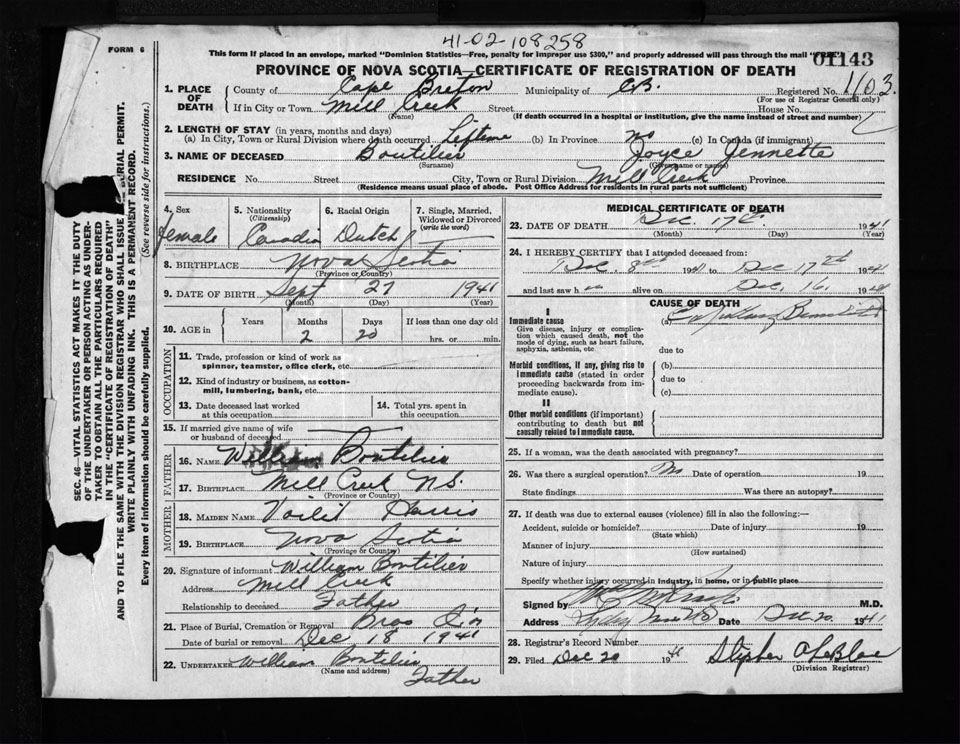 41-02-108258
FORM 6
This form if placed in an envelope, marked "Dominion Statistics—Free, penalty for improper use $300," and properly addressed will pass through the mail "FREE"
01143
PROVINCE OF NOVA SCOTIA—CERTIFICATE OF REGISTRATION OF DEATH
1. PLACE OF DEATH
County of Cape Breton Municipality of C.B. Registered No. 1103
(For use of Registrar General only)
If in City or Town Mill Creek Street House No.
(Name) (If death occurred in a hospital or institution, give the name instead of street and number)
2. LENGTH OF STAY (in years, months and days)
(a) In City, Town or Rural Division where death occurred Liftime (b) In Province no (c) In Canada (if immigrant)
3. NAME OF DECEASED Boutilier Joyce Jennette
(Surname) (Given name or names)
RESIDENCE No. Street City, Town or Rural Division Mill Creek Province
(Residence means usual place of abode. Post Office Address for residents in rural parts not sufficient)
4. Sex
female
5. Nationality
(Citizenship)
Canadia
6. Racial Origin
Dutch
7. Single, Married, Widowed or Divorced
(write the word)
8. BIRTHPLACE Nova Scotia
(Province or Country)
9. DATE OF BIRTH Sept 27 1941
(Month) (Day) (Year)
10. AGE in
Years Months Days If less than one day old
2 20 hrs. or min.
OCCUPATION
11. Trade, profession or kind of work as
spinner, teamster, office clerk, etc.
12. Kind of industry or business, as cotton-
mill, lumbering, bank, etc.
13. Date deceased last worked
at this occupation
14. Total yrs. spent in
this occupation
15. If married give name of wife
or husband of deceased
FATHER
16. NAME William Boutilier
17. BIRTHPLACE Mill Creek N.S.
(Province or Country)
MOTHER
18. MAIDEN NAME Voilit Harris
19. BIRTHPLACE Nova Scotia
(Province or Country)
20. Signature of informant William Boutilier
Address Mill Creek
Relationship to deceased Father
21. Place of Burial, Cremation or Removal Bras
Date of burial or removal Dec 18 1941
22. UNDERTAKER William Boutilier
(Name and address)
Father
MEDICAL CERTIFICATE OF DEATH
23. DATE OF DEATH Dec. 17th 1941
(Month) (Day) (Year)
24. I HEREBY CERTIFY that I attended deceased from:
Dec. 8th 1941 to Dec 17th 1941
and last saw h alive on Dec. 16, 19
CAUSE OF DEATH
I
Immediate cause (a)
Give disease, injury or complica-
tion which caused death, not the
mode of dying, such as heart failure,
asphyxia, asthenia, etc
due to
Morbid conditions, if any, giving rise to
immediate cause (stated in order
proceeding backwards from im-
mediate cause).
(b)
due to
(c)
II
Other morbid conditions (if important)
contributing to death but not
causally related to immediate cause.
25. If a woman, was the death associated with pregnancy?
26. Was there a surgical operation? No Date of operation 19
State findings Was there an autopsy?
27. If death was due to external causes (violence) fill in also the following:—
Accident, suicide or homicide? Date of injury 19
(State which)
Manner of injury
(How sustained)
Nature of injury
Specify whether injury occurred in industry, in home, or in public place
Signed by M.D.
Address Date Dec. 20. 1941
28. Registrar's Record Number
29. Filed Dec 20 1941 Stephen A LeBlanc
(Division Registrar)
SEC. 46—VITAL STATISTICS ACT MAKES IT THE DUTY
OF THE UNDERTAKER OR PERSON ACTING AS UNDER-
TAKER TO OBTAIN ALL THE PARTICULARS REQUIRED
IN THE "CERTIFICATE OF REGISTRATION OF DEATH"
AND TO FILE THE SAME WITH THE DIVISION REGISTRAR WHO SHALL ISSUE BURIAL PERMIT.
WRITE PLAINLY WITH UNFADING INK. THIS IS A PERMANENT RECORD.
Every item of information should be carefully supplied. (See reverse side for instructions.)